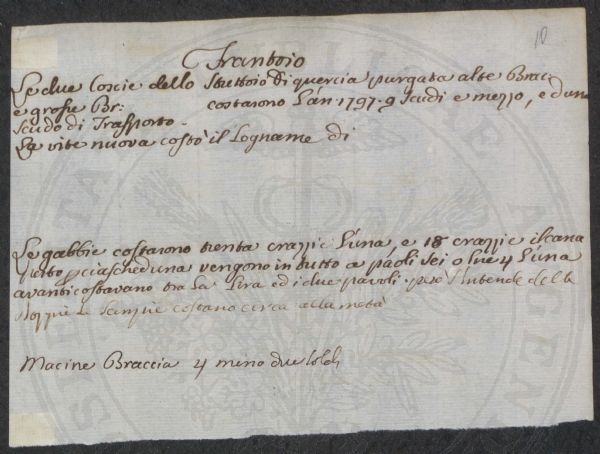 10
Frantoio
Le due Coscie dello Stuttoio di quercia purgata alte Brac:
e grosse Br: costarono l'an 1797. 9 Scudi e mezzo, e d'uno
Scudo di Trasporto.
La vite nuova costò il Legname di
Le gabbie costarono trenta crazzie l'una, e 18 crazzie il cana
petto p ciascheduna vengono in tutto a paoli sei o lire 4 l'una
avanti costavano tra la Lira ed i due pavoli. però s'intende delle
doppie le Sempie costano circa alla metà
Macine Braccia 4 meno due soldi